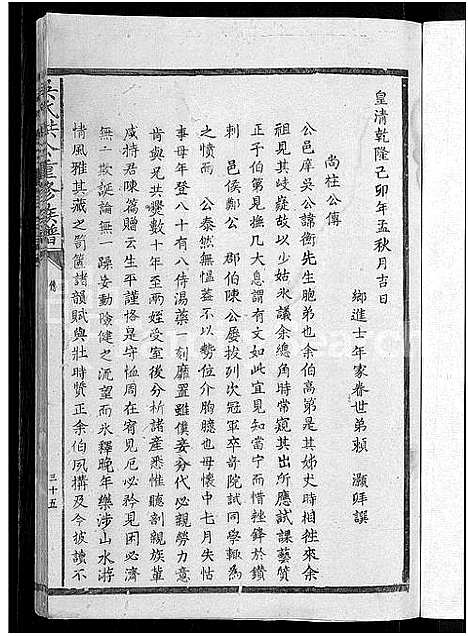 皇清乾隆己卯年孟秋月吉日
鄉進士年家眷世弟賴 灝拜譔
尚柱公傳
公邑庠吳公諱衡先生胞弟也余伯高第是其姊丈時相往來余
祖見其岐嶷故以少姑氷議余總角時常窺其出所應試課藝質
正于伯第見撫几大息謂有文如此宜見知當宁而惜挫鋒於鑽
刺 邑侯鄭公 郡伯陳公屢拔列次冠軍卒奇院試同學輙為
之憤而 公泰然無慍益不以勢位介胸臆也母懷中七月失怙
事母年登八十有八侍湯藥一刻靡置雖僕妾夯代必親勞力意
肯與兄共爨數十年至兩姪受室後分析諸產悉惟聽剖親族輩
咸特君陳篇贈云生平謹恪是守恤周在宥見厄必矜見困必濟
無一欺誕論無一躁妄動險健之流望而氷釋晚年樂涉山水游
情風雅其藏之笥篋諸韻賦與壯時贄正余伯夙搆及今披讀不
吳氏公重修族譜
傳
三十五